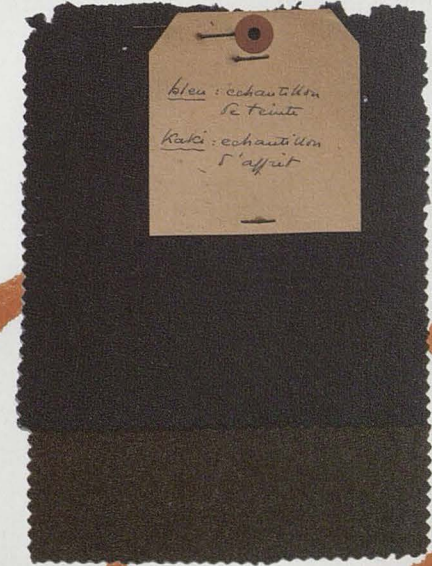 bleu : echantillon
de teinte
Kaki : echantillon
d'affrit